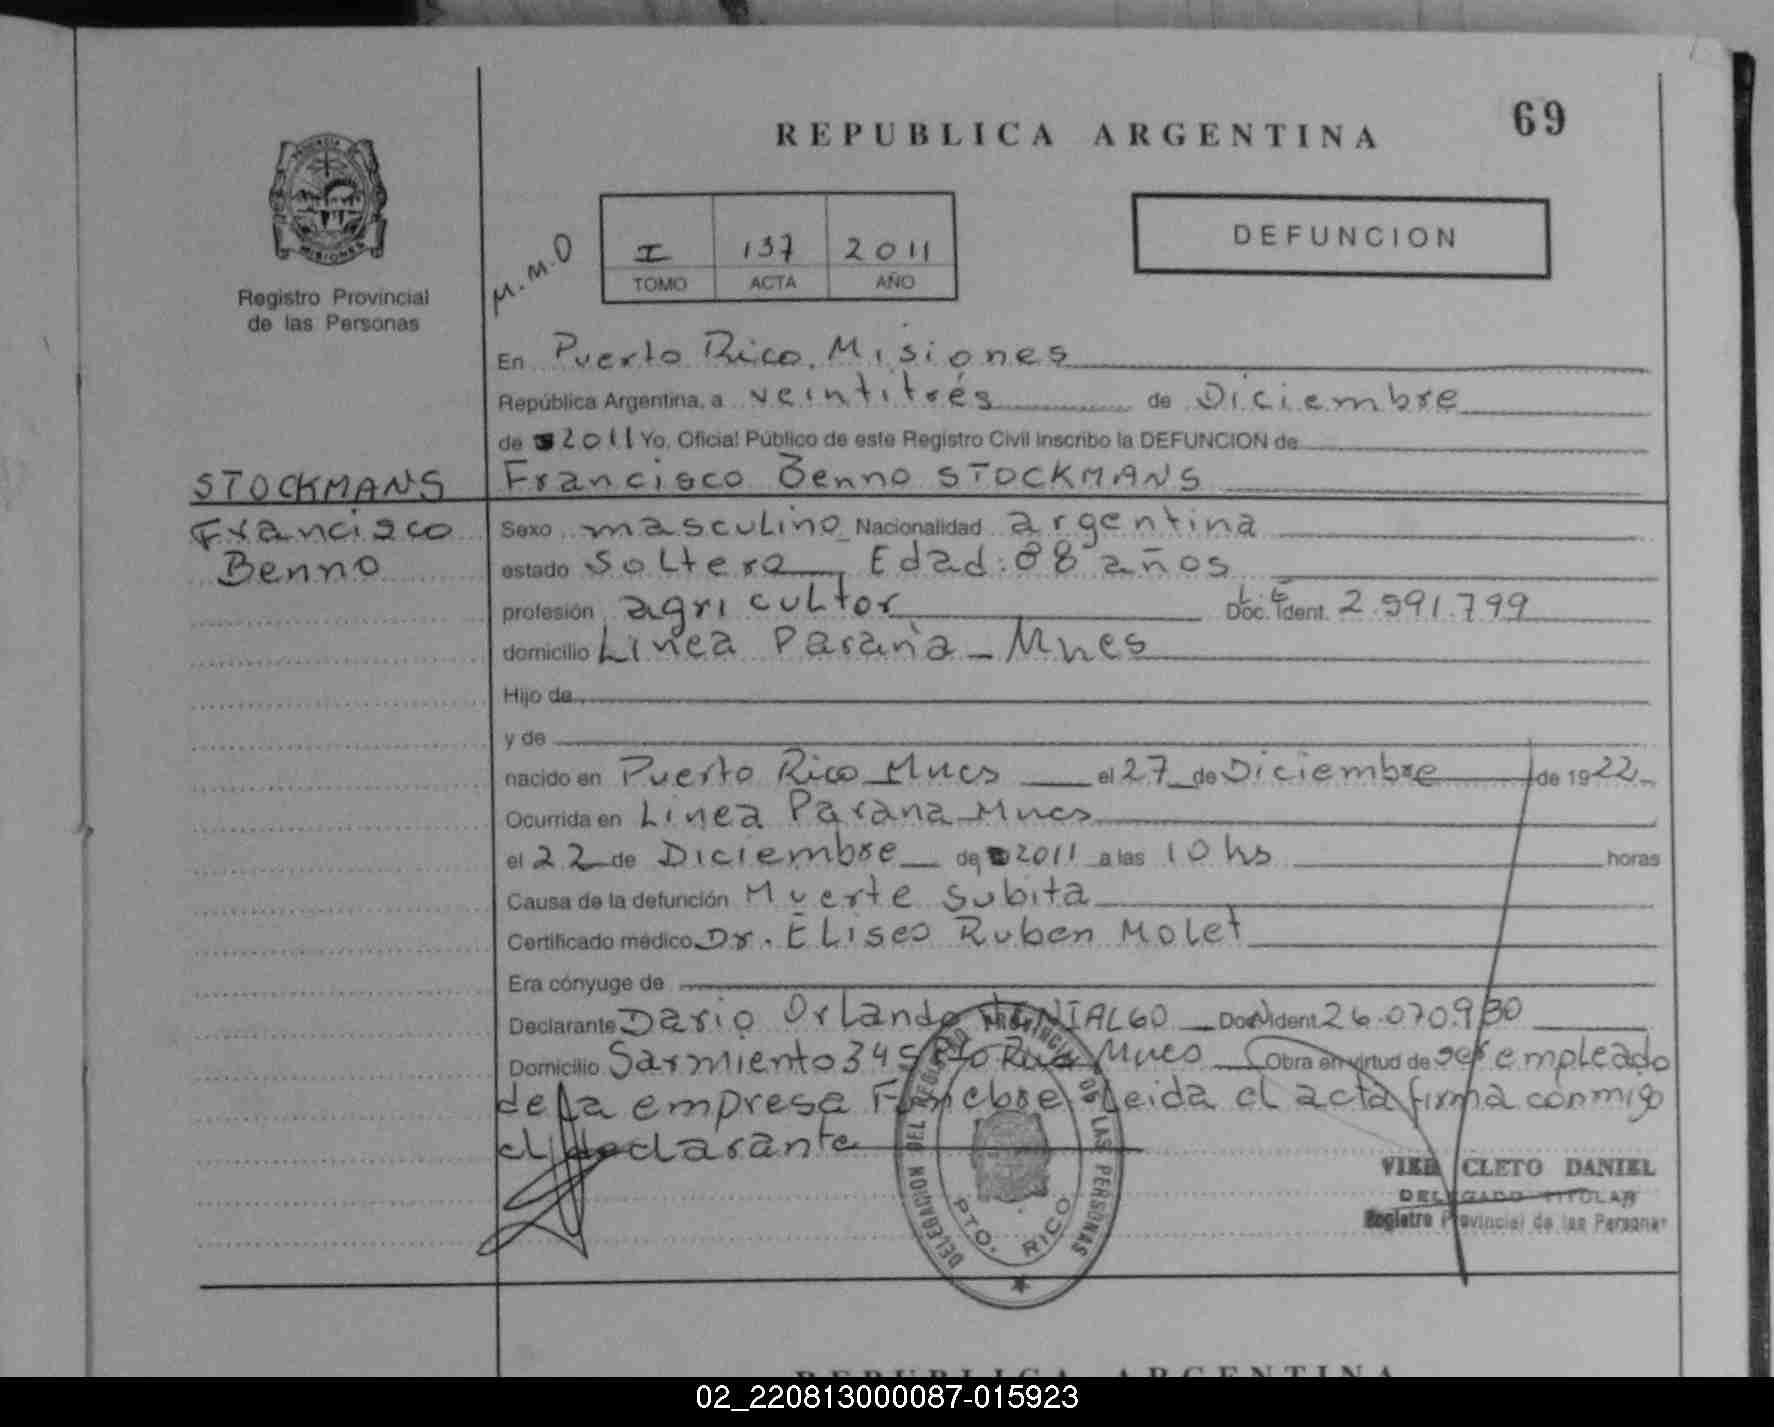 69
REPUBLICA ARGENTINA
PROVINCIA
MISIONES
Registro Provincial
de las Personas
M.M.O
I 137 2011
TOMO ACTA AÑO
DEFUNCION
En Puerto Rico. Misiones
República Argentina, a veintitrés de Diciembre
de 2011 Yo, Oficial Público de este Registro Civil inscribo la DEFUNCION de
STOCKMANS Francisco Benno STOCKMANS
Francisco Sexo masculino Nacionalidad argentina
Benno estado soltero Edad: 88 años
profesión agricultor Doc. Ident. L.E 2.591.799
domicilio Linea Parana - Mnes
Hijo de
y de
nacido en Puerto Rico Mnes el 27 de Diciembre de 1922
Ocurrida en Linea Parana Mnes
el 22 de Diciembre de 2011 a las 10 hs horas
Causa de la defunción Muerte subita
Certificado médico Dr. Eliseo Ruben Molet
Era cónyuge de
Declarante Dario Orlando Doc. Ident 26.070.930
Domicilio Sarmiento 345 Pto Rico Mnes Obra en virtud de ser empleado
de la empresa Funebre Leida el acta firma conmigo
el declarante
DELEGACION DEL REGISTRO PROVINCIAL DE LAS PERSONAS
PTO. RICO
CLETO DANIEL
DELEGADO TITULAR
Registro Provincial de las Personas
REPUBLICA ARGENTINA
02_220813000087-015923